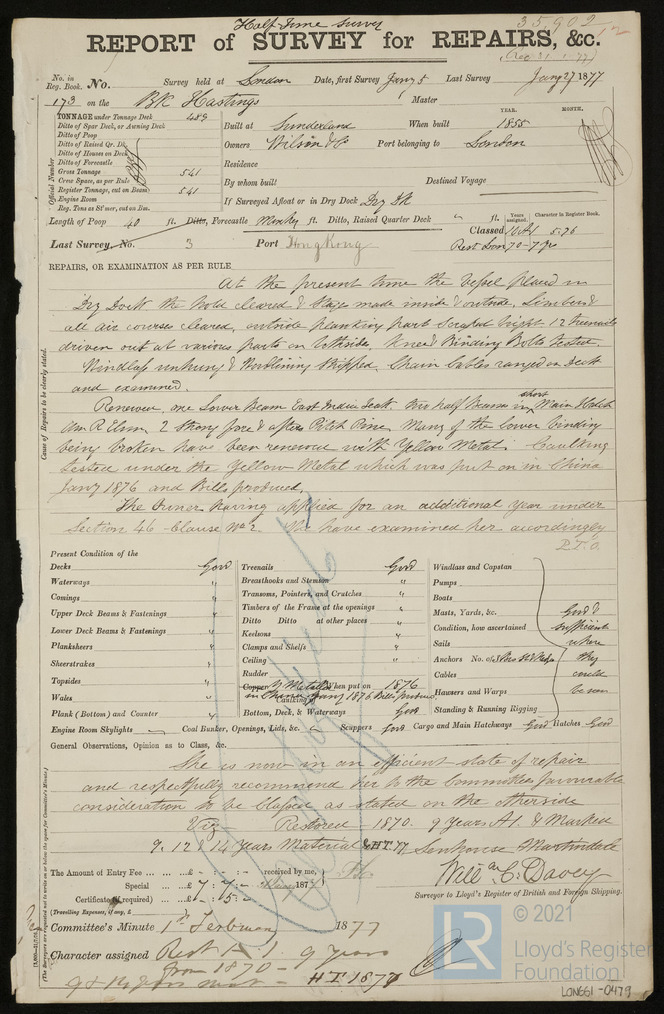 Half Time Survey
35,902
REPORT of SURVEY for REPAIRS, &c.
No. in Reg. Book. No. Survey held at London Date, first Survey Jany 5 Last Survey Jany 27 1877
173 on the Bk Hastings Master
TONNAGE under Tonnage Deck 489
Ditto of Spar Deck, or Awning Deck
Ditto of Poop
Ditto of Raised Qr. Dk.
Ditto of Houses on Deck
Ditto of Forecastle
Gross Tonnage 541
Crew Space, as per Rule
Register Tonnage, cut on Beam 541
Engine Room
Reg. Tons as St'mer, cut on Bm.
Official Number
YEAR. MONTH.
Built at Sunderland When built 1855
Owners Wilson & Co Port belonging to London
Residence
By whom built Destined Voyage
If Surveyed Afloat or in Dry Dock Dry Dk
Length of Poop 40 ft. Ditto, Forecastle Monkey ft. Ditto, Raised Quarter Deck " ft.
Years assigned. Character in Register Book.
Classed 10 A1 5.76
Rest Lon 70-7 yrs
Last Survey, No. 3 Port Hong Kong
REPAIRS, OR EXAMINATION AS PER RULE
Cause of Repairs to be clearly stated.
At the present time the Vessel placed in
Dry Dock the hold cleared & Stages made inside & outside, Limbers &
all air courses cleared, outside planking part scraped bright 12 treenails
driven out at various parts on bothsides, Knee & Binding Bolts tested.
Windlass unhung & Woodlining stripped. Chain Cables ranged on Deck
and examined.
Renewed, one Lower Beam East India Teak. two half Beams in short Main Hatch
Am R Elm. 2 Strong fore & afters Pitch Pine Many of the lower binding
being broken have been renewed with Yellow Metal. Caulking
tested under the Yellow Metal which was put on in China
Jany 1876 and Bills produced.
The Owner having applied for an additional Year under
Section 46 Clause No 2. We have examined her accordingly
P.T.O.
Present Condition of the
Decks Good
Waterways "
Comings "
Upper Deck Beams & Fastenings "
Lower Deck Beams & Fastenings "
Planksheers "
Sheerstrakes "
Topsides "
Wales "
Plank (Bottom) and Counter "
Treenails Good
Breasthooks and Stemson "
Transoms, Pointers, and Crutches "
Timbers of the Frame at the openings "
Ditto Ditto at other places "
Keelsons "
Clamps and Shelfs "
Ceiling "
Rudder
Copper Y Metalled When put on 1876
Caulking in China Jany 1876 Bills produced
Bottom, Deck, & Waterways Good
Windlass and Capstan
Pumps
Boats
Masts, Yards, &c.
Condition, how ascertained
Sails
Anchors No. of
Cables
Hausers and Warps
Standing & Running Rigging
Good & sufficient where they could be seen
Engine Room Skylights Coal Bunker, Openings, Lids, &c. Scuppers Good Cargo and Main Hatchways Good Hatches Good
General Observations, Opinion as to Class, &c.
She is now in an efficient state of repair
and respectfully recommend her to the Committees favourable
consideration to be Classed as stated on the otherside
Viz Restored - 1870. 9 Years A1. & Marked
9. 12 & 14 Years Material & H.T. 77
The Amount of Entry Fee ... £ - : - : - received by me,
Special ... £ 7 : 7 : - 187
Certificate (if required) ... £ - : 5 : -
(Travelling Expenses, if any, £ )
Will C. Davey
Surveyor to Lloyd's Register of British and Foreign Shipping.
Committee's Minute 1st February 1877
Character assigned Rest A 1. 9 Years
from 1870 -
9 & 14 years mat - H T 1877
(The Surveyors are requested not to write on or below the space for Committee's Minute.)
LR
© 2021
Lloyd's Register
Foundation
LON661-0479